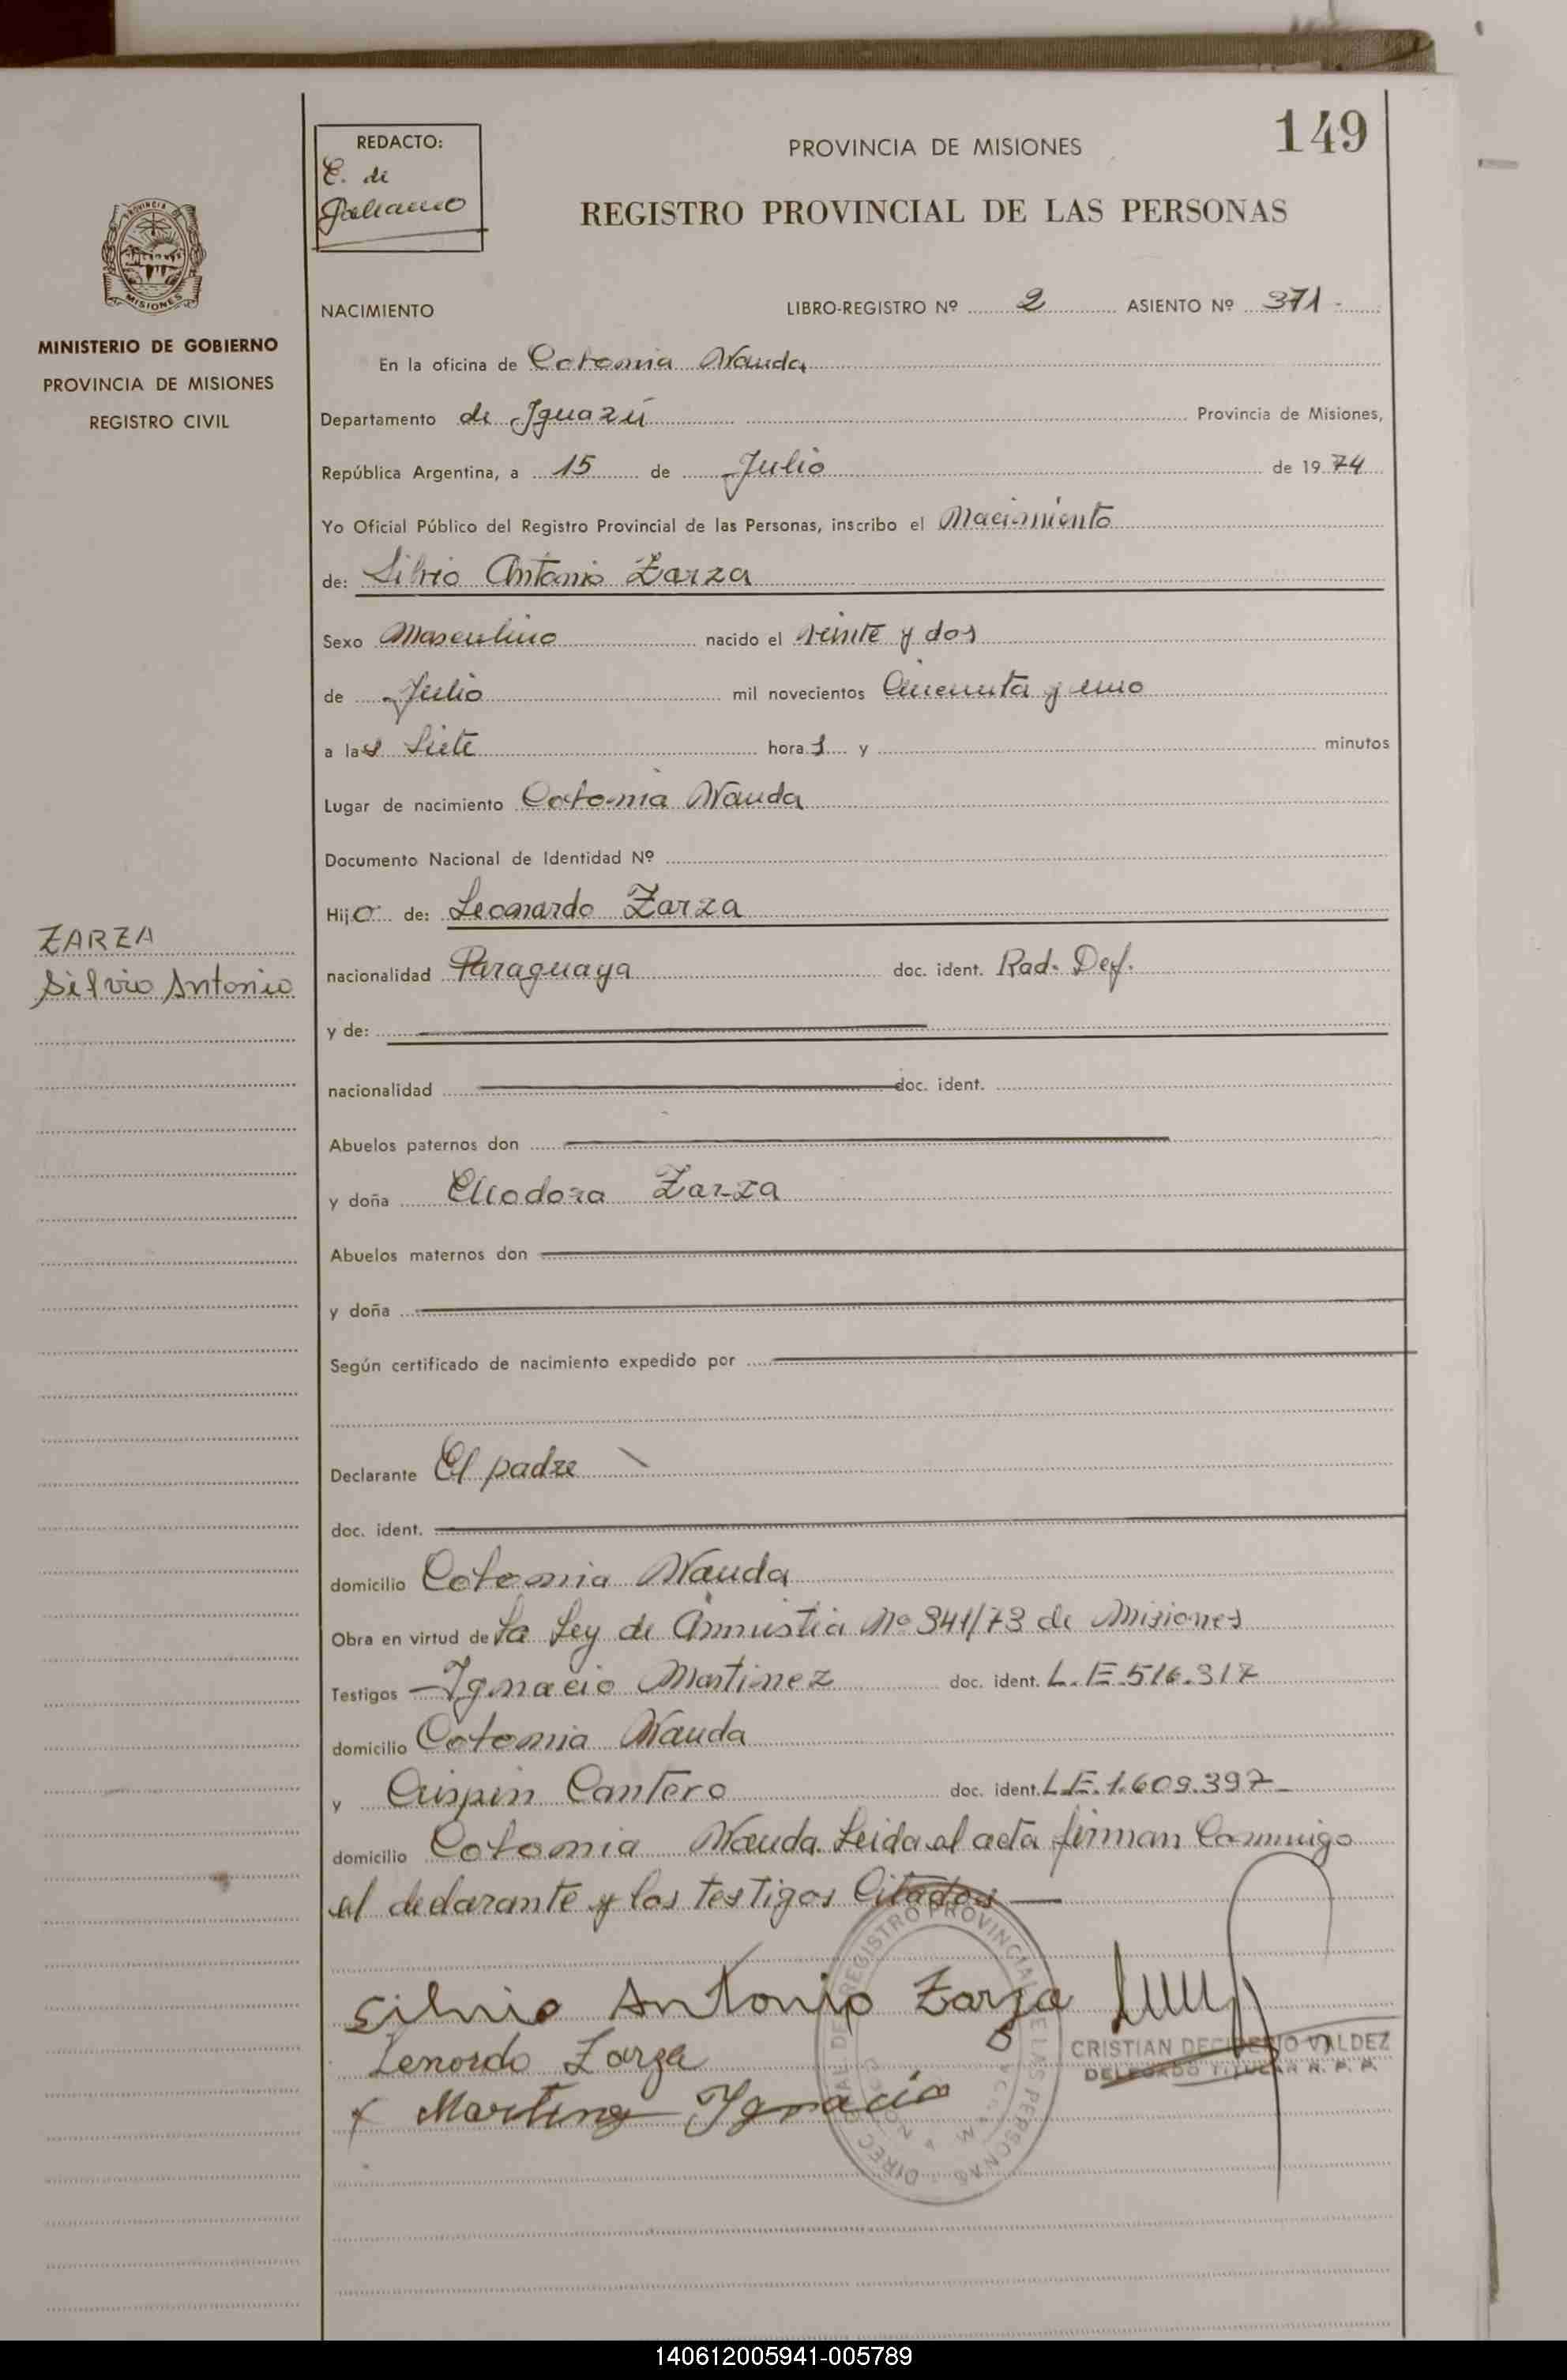 149
REDACTO:
E. de
Galeano
PROVINCIA DE MISIONES
REGISTRO PROVINCIAL DE LAS PERSONAS
PROVINCIA DE
MISIONES
MINISTERIO DE GOBIERNO
PROVINCIA DE MISIONES
REGISTRO CIVIL
NACIMIENTO
LIBRO-REGISTRO Nº 2 ASIENTO Nº 371-
En la oficina de Colonia Wanda
Departamento de Iguazú Provincia de Misiones,
República Argentina, a 15 de Julio de 1974
Yo Oficial Público del Registro Provincial de las Personas, inscribo el Nacimiento
de: Silvio Antonio Zarza
Sexo Masculino nacido el veinte y dos
de Julio mil novecientos Cincuenta y uno
a las Siete horas y minutos
Lugar de nacimiento Colonia Wanda
Documento Nacional de Identidad Nº
Hijo de: Leonardo Zarza
ZARZA
Silvio Antonio
nacionalidad Paraguaya doc. ident. Rad. Def.
y de:
nacionalidad doc. ident.
Abuelos paternos don
y doña Eliodora Zarza
Abuelos maternos don
y doña
Según certificado de nacimiento expedido por
Declarante El padre
doc. ident.
domicilio Colonia Wanda
Obra en virtud de La Ley de Amnistia Nº 341/73 de Misiones
Testigos Ignacio Martinez doc. ident. L.E.516.317
domicilio Colonia Wanda
y Crispin Cantero doc. ident. L.E.1.609.397-
domicilio Colonia Wanda. Leida el acta firman Conmigo
el declarante y los testigos Citados
Silvio Antonio Zarza
CRISTIAN DECIDERIO VALDEZ
DELEGADO TITULAR R. P. P.
Lenordo Zarza
Martinez Ignacio
140612005941-005789